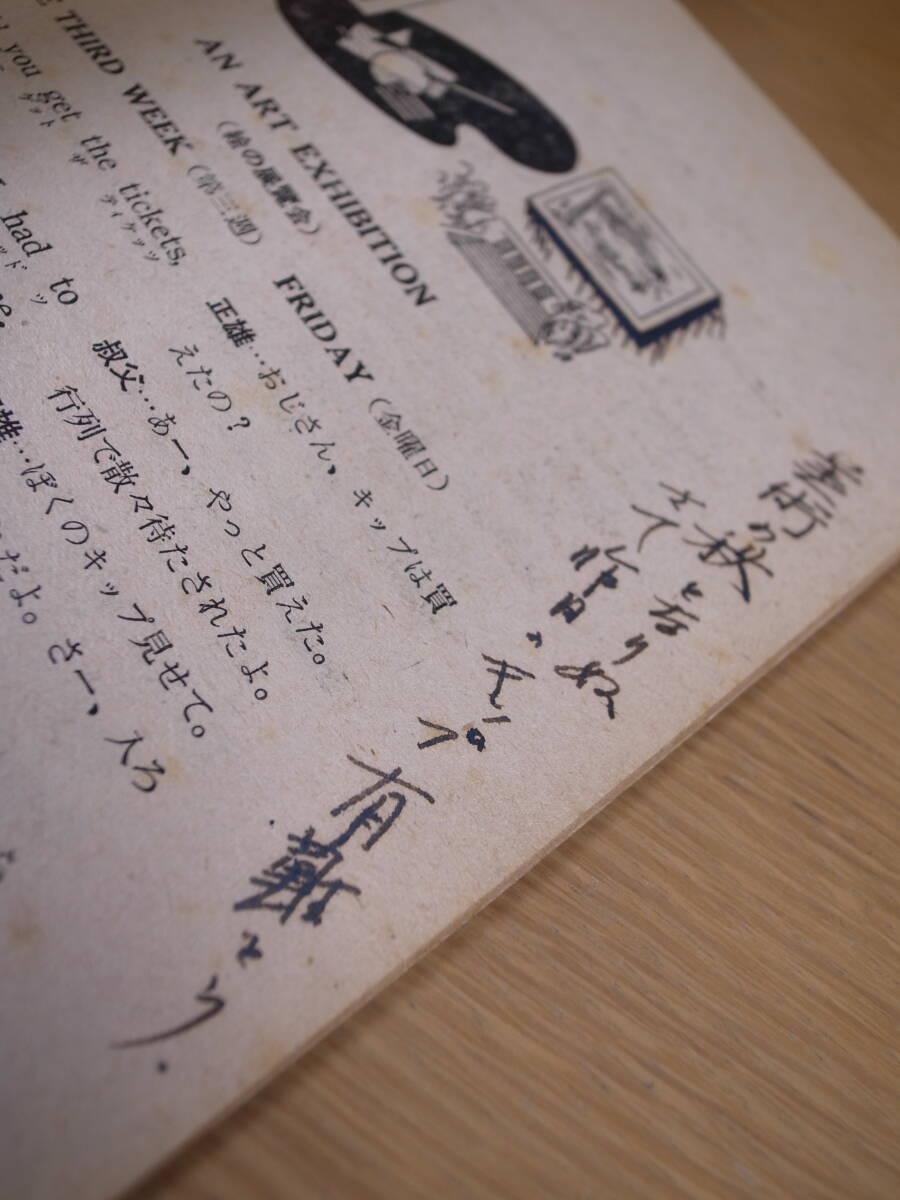 AN ART EXHIBITION
(絵の展覧会)
THIRD WEEK (第三週) FRIDAY (金曜日)
you get the tickets,
ゲット ザ ティケッツ
had to
正雄…おじさん、キップは買
えたの?
叔父…あー、やっと買えた。
行列で散々待たされたよ。
雄…ぼくのキップ見せて。
だよ。さー、入ろ
秋となりぬ
さて
昨日の
有難とう.